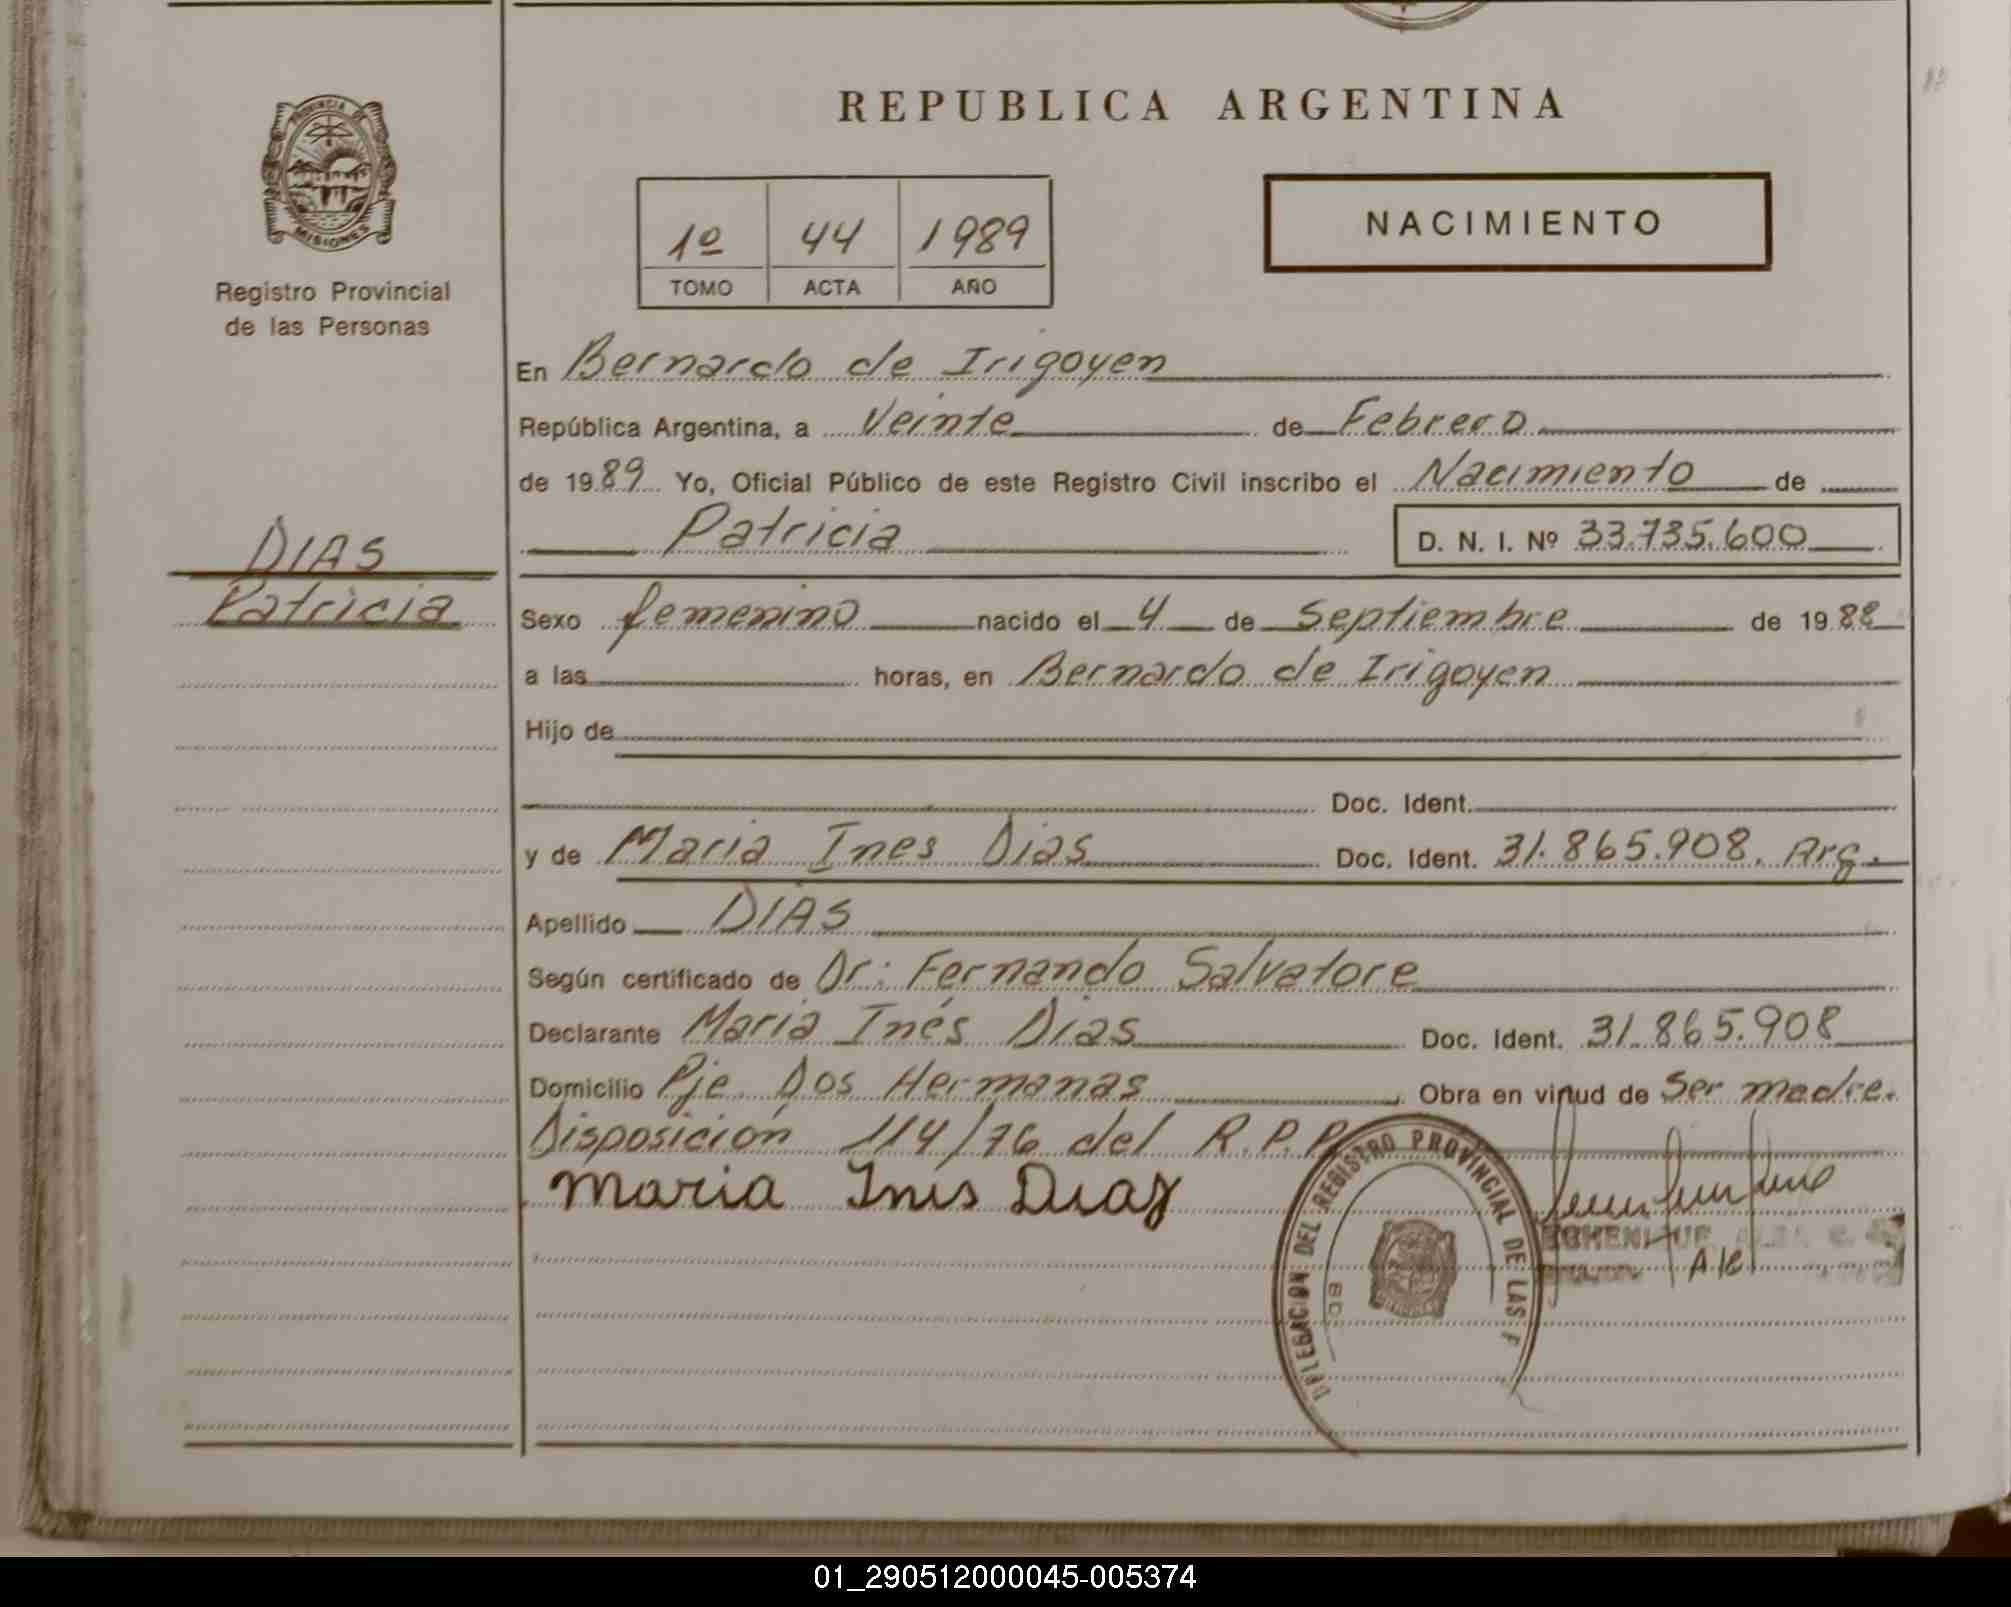 REPUBLICA ARGENTINA
PROVINCIA DE
MISIONES
Registro Provincial
de las Personas
1º 44 1989
TOMO ACTA AÑO
NACIMIENTO
En Bernardo de Irigoyen
República Argentina, a Veinte de Febrero
de 1989 Yo, Oficial Público de este Registro Civil inscribo el Nacimiento de
Patricia D. N. I. Nº 33.735.600
DIAS
Patricia
Sexo femenino nacido el 4 de Septiembre de 1988
a las horas, en Bernardo de Irigoyen
Hijo de
Doc. Ident.
y de Maria Ines Dias Doc. Ident. 31.865.908. Arg.
Apellido DIAS
Según certificado de Dr: Fernando Salvatore
Declarante Maria Inés Dias Doc. Ident. 31.865.908
Domicilio Pje Dos Hermanas Obra en virtud de Ser madre.
Disposición 114/76 del R.P.P.
Maria Inis Diaz
DELEGACION DEL REGISTRO PROVINCIAL DE LAS P
01_290512000045-005374